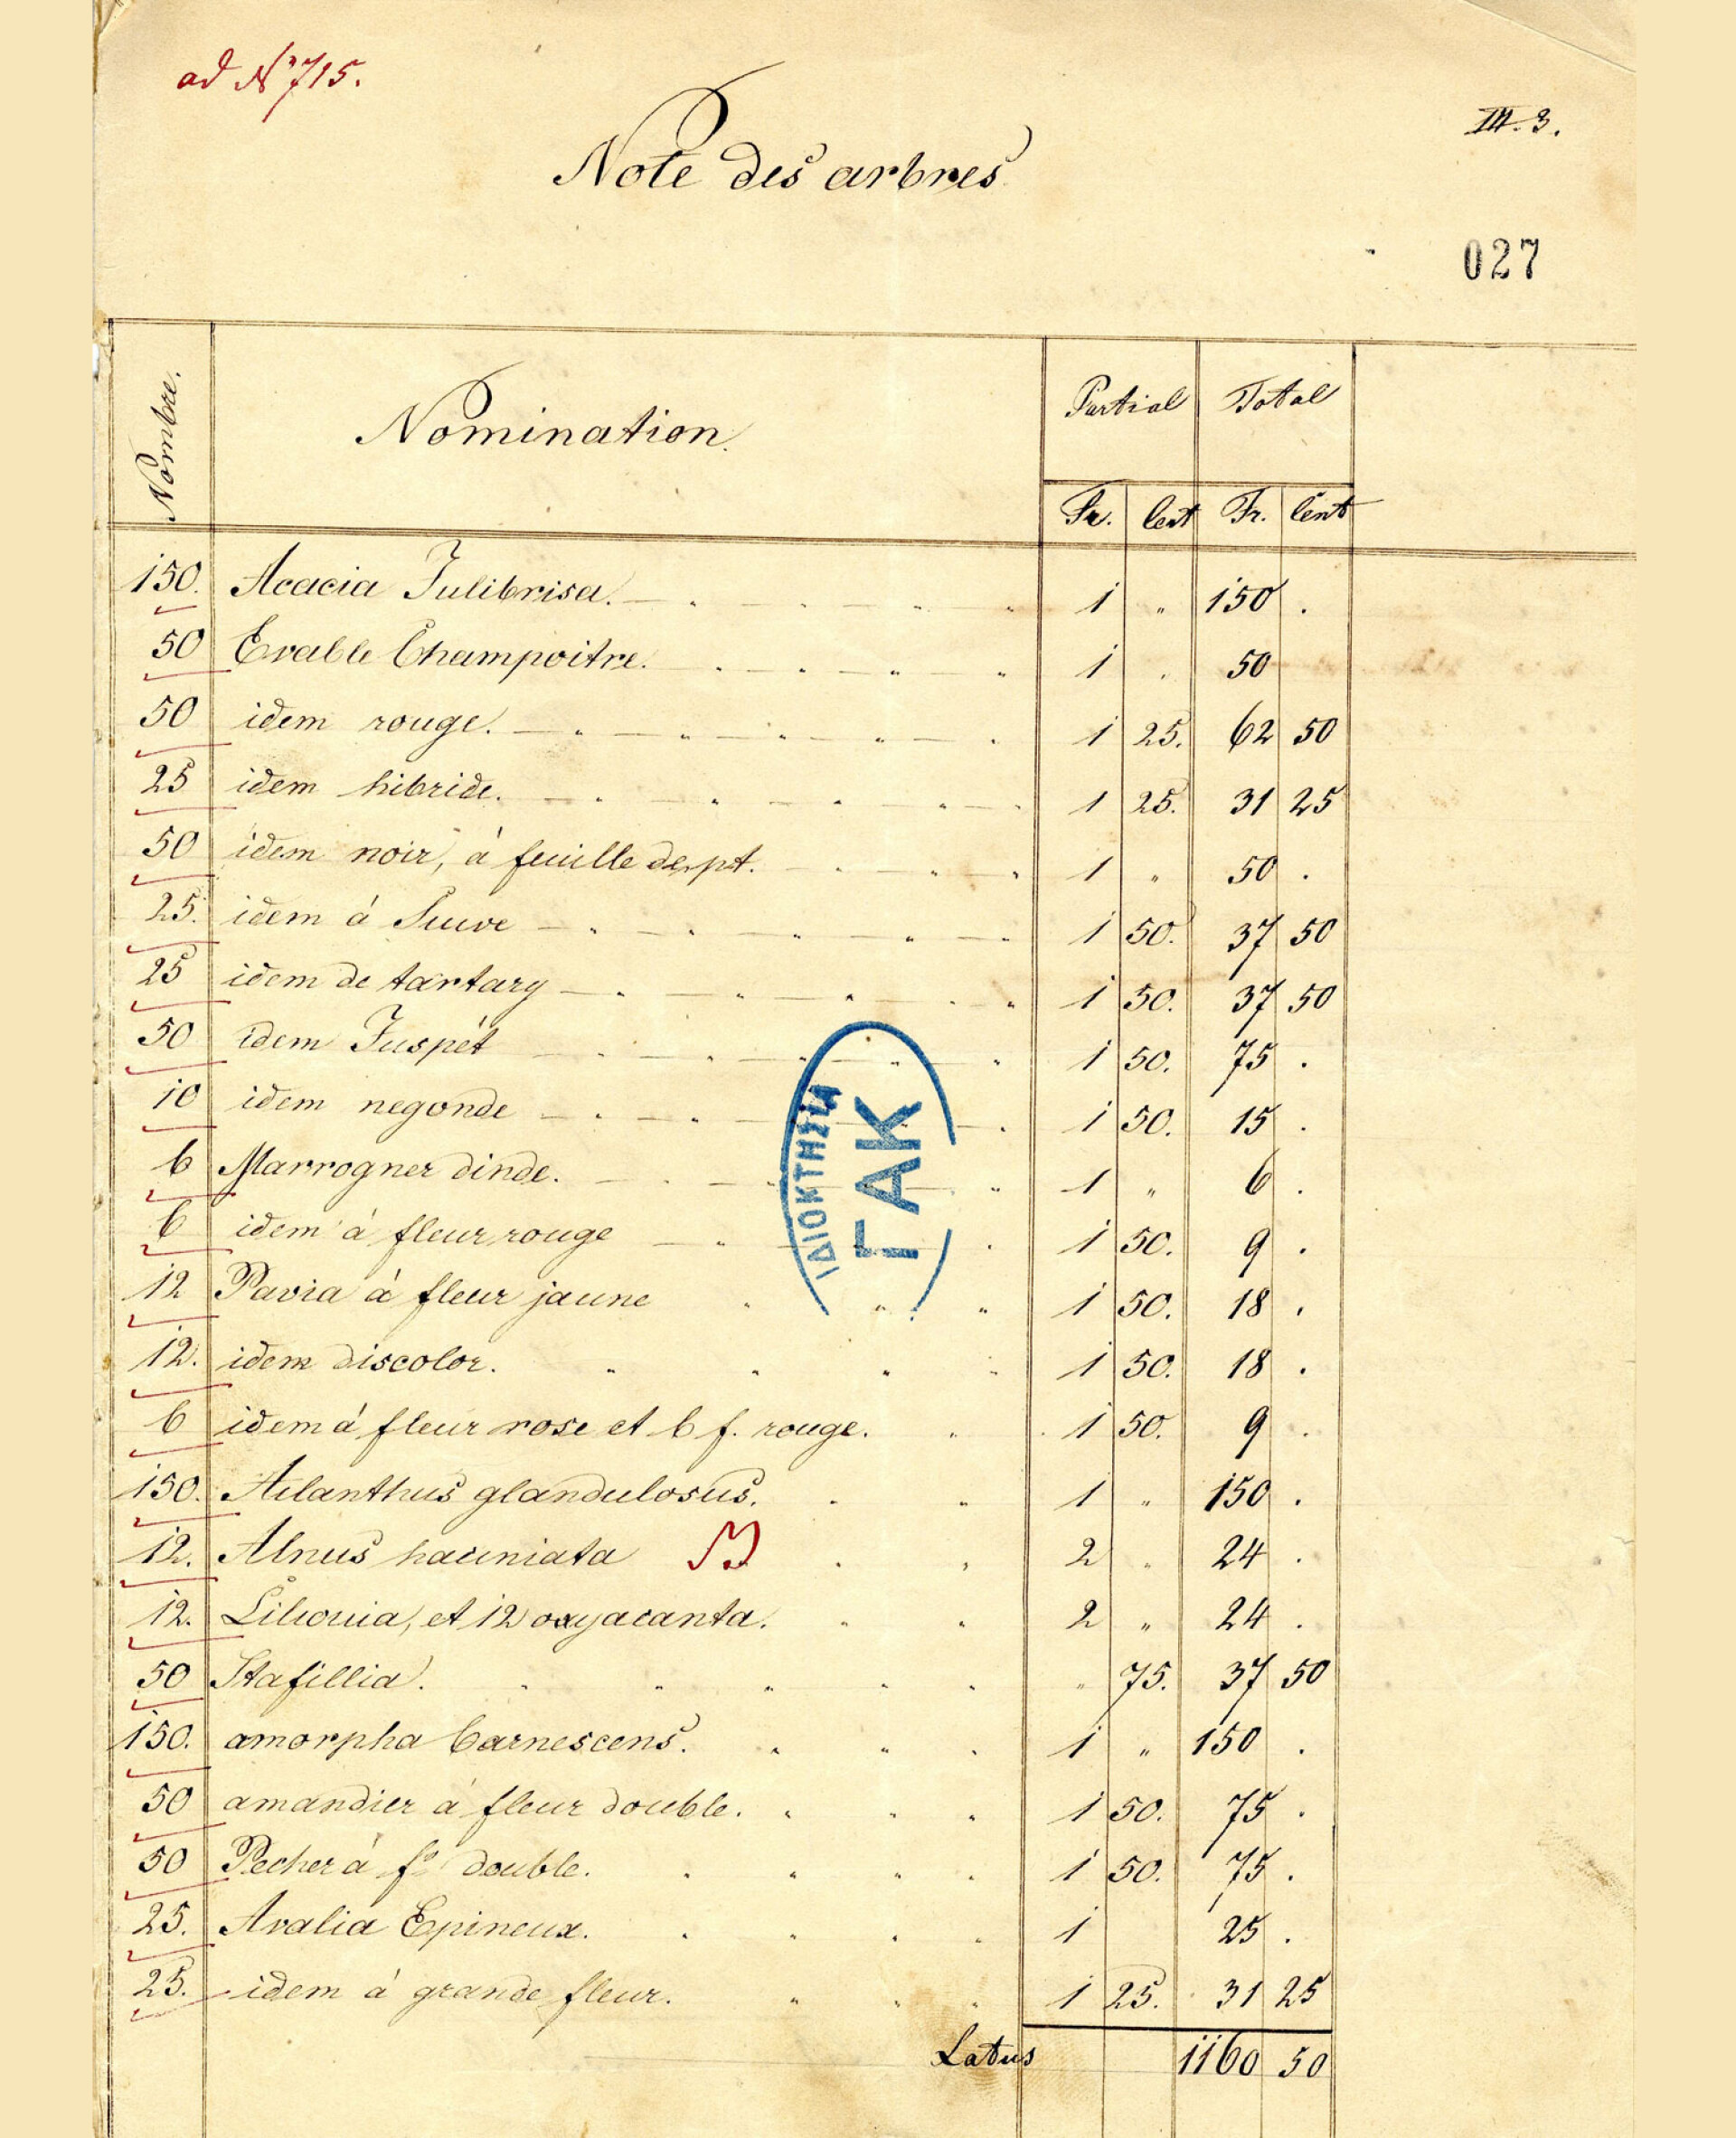 ad Nº 715.
III. 3.
Note des arbres
027
Nombre. Nomination. Partial Total
Fr. Cent Fr. Cent
150. Acacia Julibrisa. 1 " 150 .
50 Erable Champoitre. 1 . 50
50 idem rouge. 1 25. 62 50
25 idem hibride. 1 25. 31 25
50 idem noir, á feuille de pt. 1 " 50 .
25. idem á 1 50. 37 50
25 idem de tartary 1 50. 37 50
50 idem Juspét 1 50. 75 .
10 idem negonde 1 50. 15 .
6 Marrogner dinde. 1 " 6 .
6 idem á fleur rouge 1 50. 9 .
12 Pavia á fleur jaune 1 50. 18 .
12. idem discolor. 1 50. 18 .
6 idem á fleur rose et 6 f. rouge. 1 50. 9 .
150. Ailanthus glandulosus. 1 " 150 .
12. Alnus haciniata 2 " 24 .
12. et 12 oxyacanta. 2 " 24 .
50 Stafillia. " 75. 37 50
150. amorpha Carnescens. 1 " 150 .
50 amandier á fleur double. 1 50. 75 .
50 Pecher á fº double. 1 50. 75 .
25. Aralia Epineux. 1 25 .
25. idem á grande fleur. 1 25. 31 25
Latus 1160 50
ΙΔΙΟΚΤΗΣΙΑ
ΓΑΚ